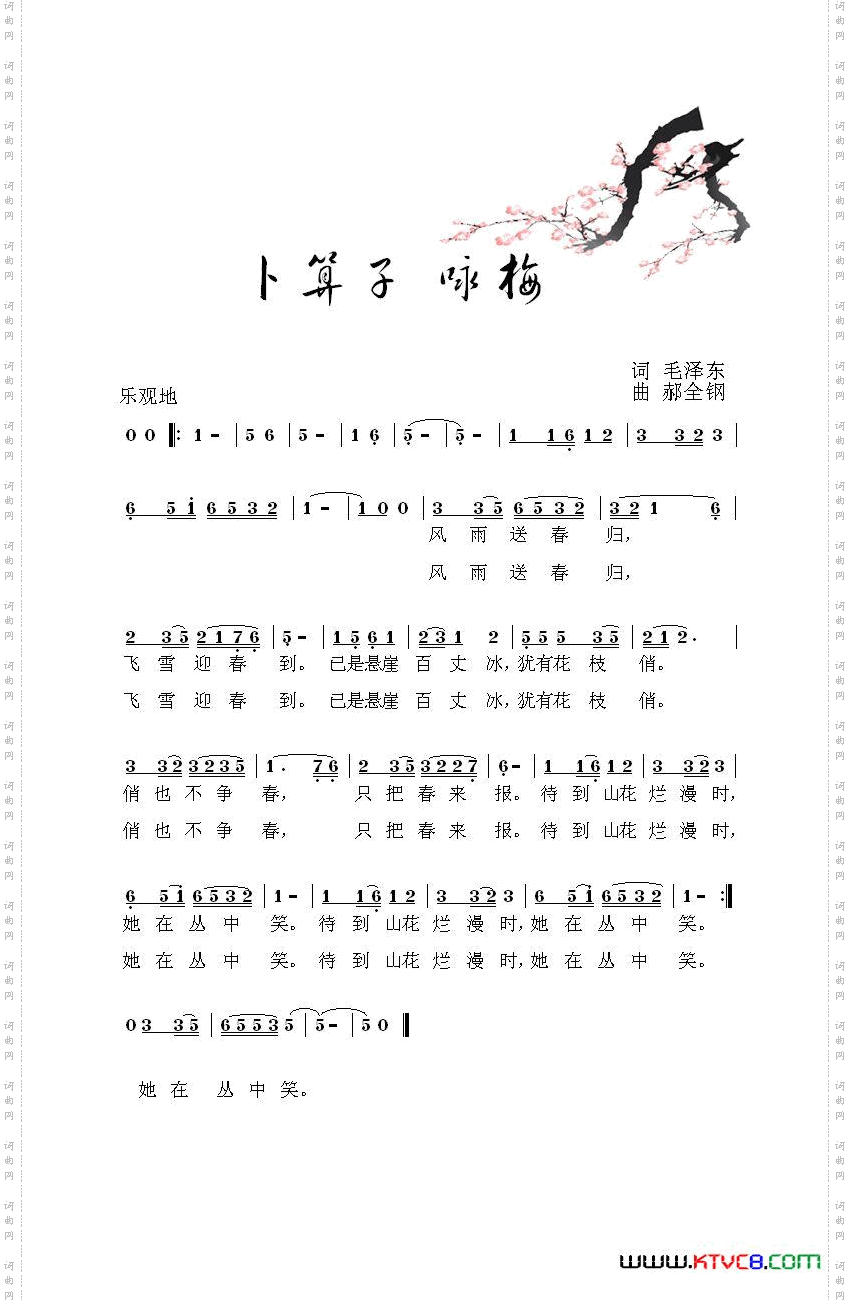 卜算子 咏梅
词 毛泽东
乐观地
曲 郝全钢
0 0 ‖: 1 - | 5 6 | 5 - | 1 6̣ | 5̣ - | 5̣ - | 1 1 6̣ 1 2 | 3 3 2 3 |
6̣ 5 1̇ 6 5 3 2 | 1 - | 1 0 0 | 3 3 5 6 5 3 2 | 3 2 1 6̣ |
风 雨 送 春 归,
风 雨 送 春 归,
2 3 5 2 1 7̣ 6̣ | 5̣ - | 1 5̣ 6̣ 1 | 2 3 1 2 | 5̣ 5 5 3 5 | 2 1 2 . |
飞 雪 迎 春 到。 已是悬崖 百 丈 冰, 犹有花 枝 俏。
飞 雪 迎 春 到。 已是悬崖 百 丈 冰, 犹有花 枝 俏。
3 3 2 3 2 3 5 | 1 . 7̣ 6̣ | 2 3 5 3 2 2 7̣ | 6̣ - | 1 1 6̣ 1 2 | 3 3 2 3 |
俏 也 不 争 春, 只 把 春 来 报。 待 到 山花 烂 漫 时,
俏 也 不 争 春, 只 把 春 来 报。 待 到 山花 烂 漫 时,
6̣ 5 1̇ 6 5 3 2 | 1 - | 1 1 6̣ 1 2 | 3 3 2 3 | 6̣ 5 1̇ 6 5 3 2 | 1 - :‖
她 在 丛 中 笑。 待 到 山花 烂 漫 时, 她 在 丛 中 笑。
她 在 丛 中 笑。 待 到 山花 烂 漫 时, 她 在 丛 中 笑。
0 3 3 5 | 6 5 5 3 5 | 5 - | 5 0 ‖
她 在 丛 中 笑。
www.KTVC8.com